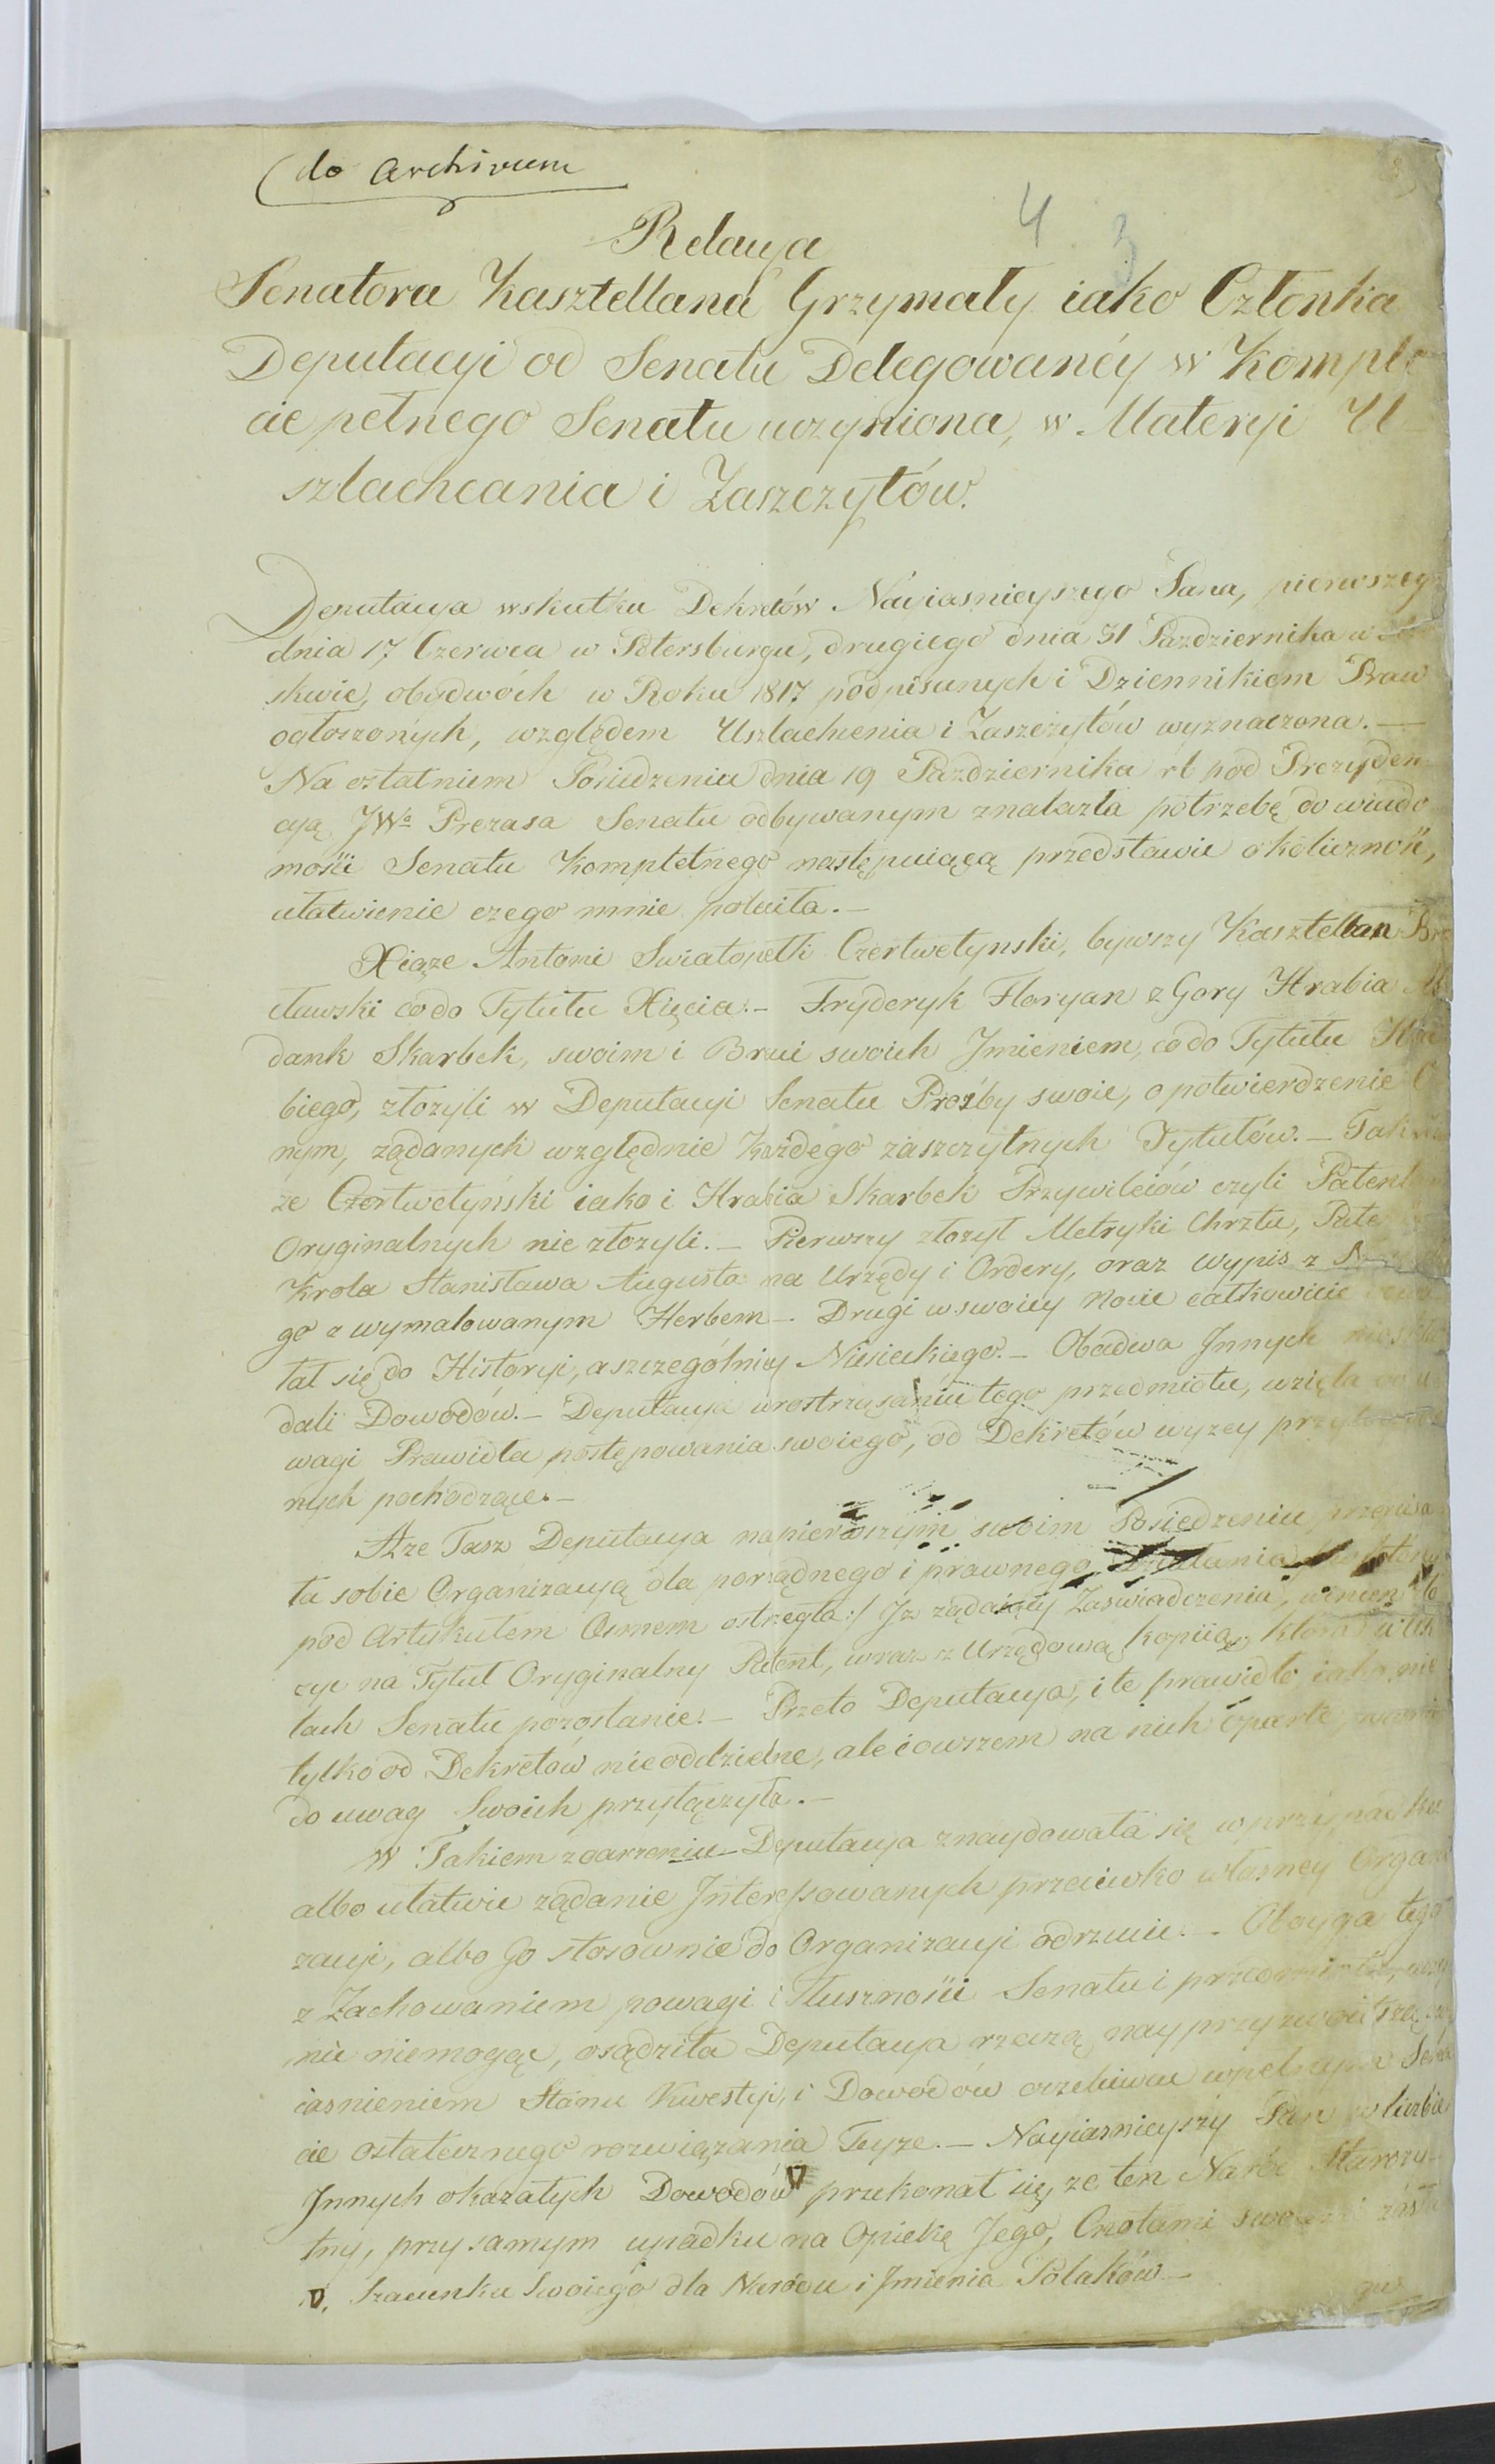 do Archivum
4 3
Relacya
Senatora Kasztellana Grzymały iako Członka
Deputacyi od Senatu Delegowanéy w Komple
cie pełnego Senatu uczyniona, w Materyi U-
szlachcania i Zaszczytów.
Deputacya wskutku Dekretów Nayiasnieyszego Pana, pierwszego
dnia 17 Czerwca w Petersburgu, drugiego dnia 31 Pazdziernika w
skwie, obudwóch w Roku 1817 podpisanych i Dziennikiem Praw
ogłoszonych, względem Uszlachcenia i Zaszczytów wyznaczona.—
Na ostatniem Posiedzeniu dnia 19 Pazdziernika rb pod Prezyden
cyą JWo Prezesa Senatu odbywanym znalazła potrzebę do wiado
mości Senatu Kompletnego następuiącą przedstawić okoliczność,
ułatwienie czego mnie poleciła.—
Xiąze Antoni Swiatopełk Czertwetynski, bywszy Kasztellan Bra
cławski co do Tytułu Xięcia.— Fryderyk Floryan z Gory Hrabia Ab
dank Skarbek, swoim i Braci swoich Jmieniem, co do Tytułu Hra
biego, złozyli w Deputacyi Senatu Prozby swoie, o potwierdzenie
nym, ządanych względnie Kazdego zaszczytnych Tytułów.— Tak
ze Czertwetyński iako i Hrabia Skarbek Przywileiów czyli Patentów
Oryginalnych nie złozyli.— Pierwszy złozył Metryki Chrztu, Pate
Krola Stanisława Augusta na Urzędy i Ordery, oraz Wypis z
go z wymalowanym Herbem.— Drugi w swoiey Nocie całkowicie
łał się do Historyi, a szczególniey Niesieckiego.— Obadwa Jnnych nie skła
dali Dowodów.— Deputacya w rostrząsaniu tego przedmiotu, wzięła do u
wagi Prawidła postępowania swoiego, od Dekretów wyzey przytoczo
nych pochodzące.—
A ze Taz Deputacya na pierwszym swoim Posiedzeniu przepisa
ła sobie Organizacyą dla porządnego i prawnego Działania,
pod Artykułem Osmem ostrzegła:/ Jz ządaiący Zaswiadczenia, winien zło
zyc na Tytuł Oryginalny Patent, wraz z Urzędową kopiią, która w Ak
tach Senatu pozostanie.— Przeto Deputacya, i te prawidło iako nie
tylko od Dekretów nieoddzielne, ale i owszem na nich oparte
do uwag Swoich przyłączyła.—
W Takiem zdarzeniu— Deputacya znaydowała się w przypadku
albo ułatwić ządanie Jnteressowanych przeciwko własney Organi
zacyi, albo Go stosownie do Organizacyi odrzucić.— Oboyga tego
z Zachowaniem powagi i Słuszności Senatu i przedmiotu, uczy
nić niemogąc, osądziła Deputacya rzeczą nayprzyzwoitszą
iasnieniem Stanu Kwestyi, i Dowodów oczekiwać w pełnym Sena
cie ostatecznego rozwiązania Teyze.— Nayiasnieyszy Pan w liczbie
Jnnych okazałych Dowodów ∇ przekonał się, ze ten Naród Starozy-
tny, przy samym upadku na Opiekę Jego, Cnotami swoiemi zasłu
∇. Szacunku Swoiego dla Narodu i Jmienia Polaków—